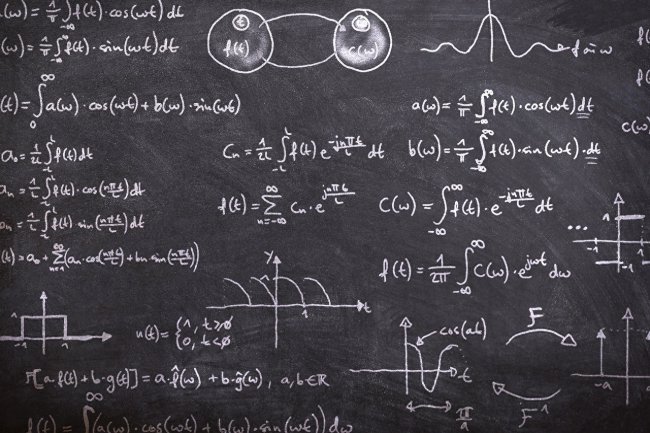 a(ω) = 1/π ∫_{-∞} f(t)·cos(ωt) dt
(ω) = 1/π ∫_{-∞}^{∞} f(t)·sin(ωt) dt
t f(t)
ω c(ω)
f sin ω
(t) = ∫_0^∞ a(ω)·cos(ωt) + b(ω)·sin(ωt)
a(ω) = 1/π ∫_{-∞}^{∞} f(t)·cos(ωt) dt
c(ω)
a₀ = 1/2L ∫_{-L}^{L} f(t) dt
Cₙ = 1/2L ∫_{-L}^{L} f(t) e^{-jnπt/L} dt
b(ω) = 1/π ∫_{-∞}^{∞} f(t)·sin(ωt)·dt
aₙ = 1/L ∫_{-L}^{L} f(t)·cos(nπt/L) dt
f(t) = ∑_{n=-∞}^{∞} Cₙ·e^{jnπt/L}
C(ω) = ∫_{-∞}^{∞} f(t)·e^{-jnπt/L} dt
...
1
-1 1
-1
1/L ∫_{-L}^{L} f(t)·sin(nπt/L) dt
(t) = a₀ + ∑_{n=1}^{∞} (aₙ·cos(nπt/L) + bₙ sin(nπt/L))
f(t) = 1/2π ∫_{-∞}^{∞} C(ω)·e^{jωt} dω
y
1
t
1
-1 1
u(t) = {1, t≥0
0, t<0
cos(at)
t
π/a
F
F⁻¹
-a
F[a·f(t) + b·g(t)] = a·f̂(ω) + b·ĝ(ω), a,b∈ℝ
f(t) = ∫^∞ (a(ω)·cos(ωt) + b(ω)·sin(ωt)) dω